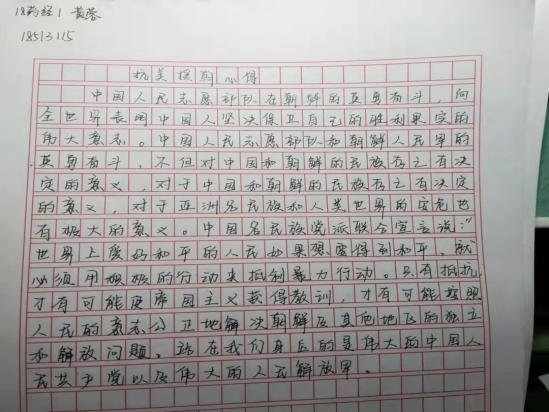 18药经1 黄蓉
18513115
抗美援朝心得
中国人民志愿部队在朝鲜的英勇奋斗，向
全世界表明中国人坚决保卫自己的胜利果实的
伟大意志。中国人民志愿部队和朝鲜人民军的
英勇奋斗，不但对中国和朝鲜的民族存亡有决
定的意义，对于中国和朝鲜的民族存亡有决定
的意义，对于亚洲各民族和人类世界的安危也
有极大的意义。中国各民族党派联合宣言说：“
世界上爱好和平的人民如果想要得到和平，就
必须用积极的行动来抵制暴力行动。只有抵抗
才有可能使帝国主义获得教训，才有可能按照
人民的意志公正地解决朝鲜及其他地区的独立
和解放问题。站在我们身后的是伟大的中国人
民共产党以及伟大的人民解放军。